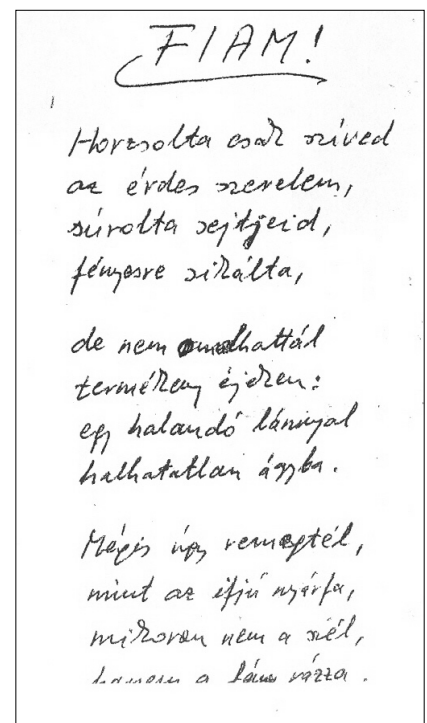 FIAM!
Horzsolta csak szíved
az érdes szerelem,
súrolta sejtjeid,
fényesre sikálta,
de nem omolhattál
termékeny éjeken:
egy halandó lánnyal
halhatatlan ágyba.
Mégis úgy remegtél,
mint az ifjú nyárfa,
mikoron nem a szél,
hanem a láz rázza.